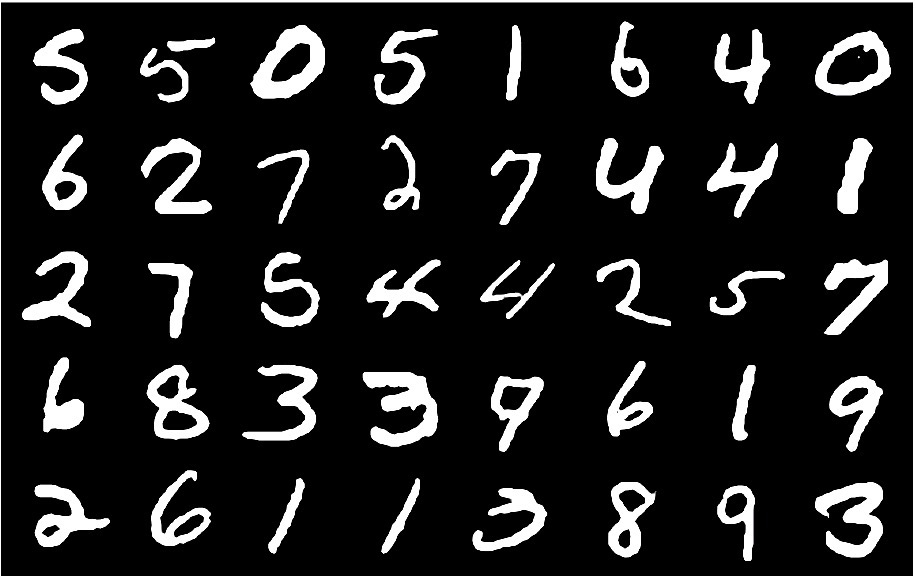 5 5 0 5 1 6 4 0
6 2 7 2 7 4 4 1
2 7 5 4 4 2 5 7
6 8 3 3 9 6 1 9
2 6 1 1 3 8 9 3